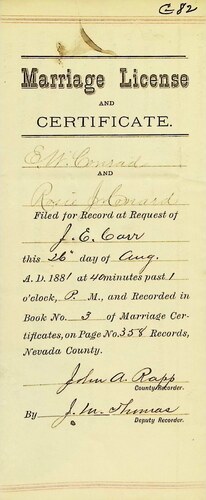 C-82
Marriage License
AND
CERTIFICATE.
E. W. Conrad
AND
Rosie J. Conard
Filed for Record at Request of
J. E. Carr
this 26" day of Aug.
A. D. 1881 at 40 minutes past 1
o'clock, P. M., and Recorded in
Book No. 3 of Marriage Cer-
tificates, on Page No. 358 Records,
Nevada County.
John A. Rapp
County Recorder.
By J. M. Thomas
Deputy Recorder.